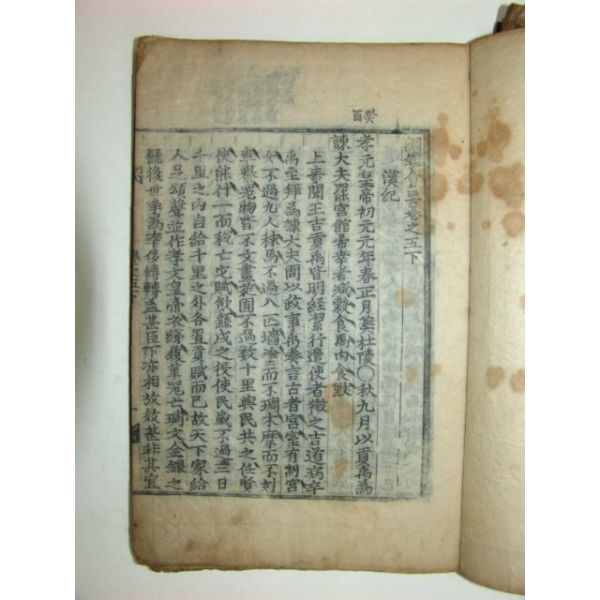 癸酉
卷之五下
漢紀
孝元皇帝初元元年春正月葬杜陵〇秋九月以貢禹爲
諫大夫罷宮館希幸者減穀食馬肉食獸
上素聞王吉貢禹皆明經潔行遣使者徵之吉道病卒
禹至拜爲諫大夫問以政事禹奏言古者宮室有制宮
女不過九人秣馬不過八匹墻塗而不琱木摩而不刻
車輿器物皆不文畫苑囿不過數十里與民共之任賢
使能什一而稅亡它賦斂繇戍之役使民歲不過三日
千里之內自給千里之外各置貢賦而已故天下家給
人足頌聲並作孝文皇帝衣綈履革器亡琱文金銀之
餙後世爭爲奢侈轉轉益甚臣下亦相放效甚非其宜